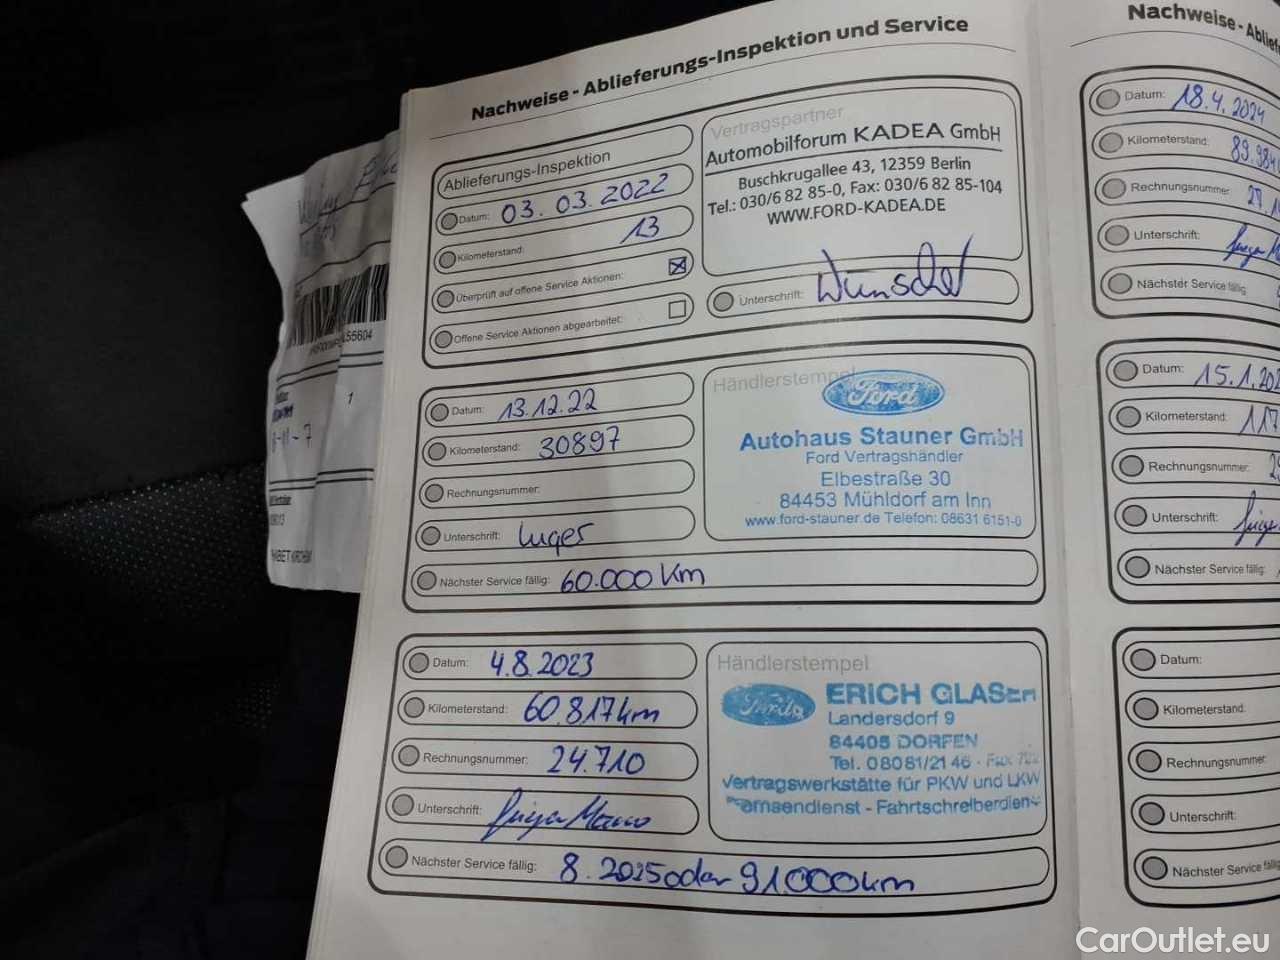 Nachweise - Ablieferungs-Inspektion und Service
Ablieferungs-Inspektion
Datum: 03.03.2022
Kilometerstand: 13
Überprüft auf offene Service Aktionen:
Offene Service Aktionen abgearbeitet:
Vertragspartner
Automobilforum KADEA GmbH
Buschkrugallee 43, 12359 Berlin
Tel.: 030/6 82 85-0, Fax: 030/6 82 85-104
WWW.FORD-KADEA.DE
Unterschrift:
Datum: 13.12.22
Kilometerstand: 30897
Rechnungsnummer:
Unterschrift: Luger
Nächster Service fällig: 60.000 Km
Händlerstempel
Ford
Autohaus Stauner GmbH
Ford Vertragshändler
Elbestraße 30
84453 Mühldorf am Inn
www.ford-stauner.de Telefon: 08631 6151-0
Datum: 4.8.2023
Kilometerstand: 60.817 km
Rechnungsnummer: 24.710
Unterschrift:
Nächster Service fällig: 8.2025 oder 91.000 km
Händlerstempel
ERICH GLASER
Landersdorf 9
84405 DORFEN
Tel. 08081/21 46
Vertragswerkstätte für PKW und LKW
Bremsendienst - Fahrtschreiberdienst
Nachweise - Ablief
Datum: 18.4.2024
Kilometerstand: 89.984
Rechnungsnummer:
Unterschrift:
Nächster Service fällig
Datum: 15.1.202
Kilometerstand: 117
Rechnungsnummer:
Unterschrift:
Nächster Service fällig:
Datum:
Kilometerstand:
Rechnungsnummer:
Unterschrift:
Nächster Service fällig
55604
1
CarOutlet.eu